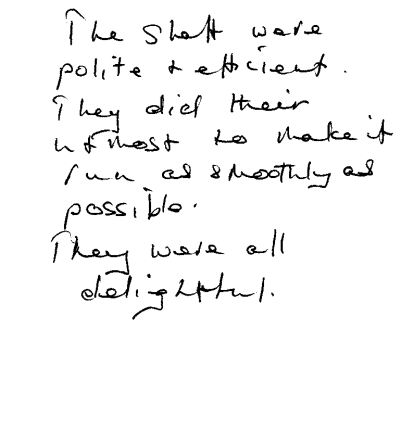 The staff were
polite + efficient.
They did their
utmost to make it
run as smoothly as
possible.
They were all
delightful.